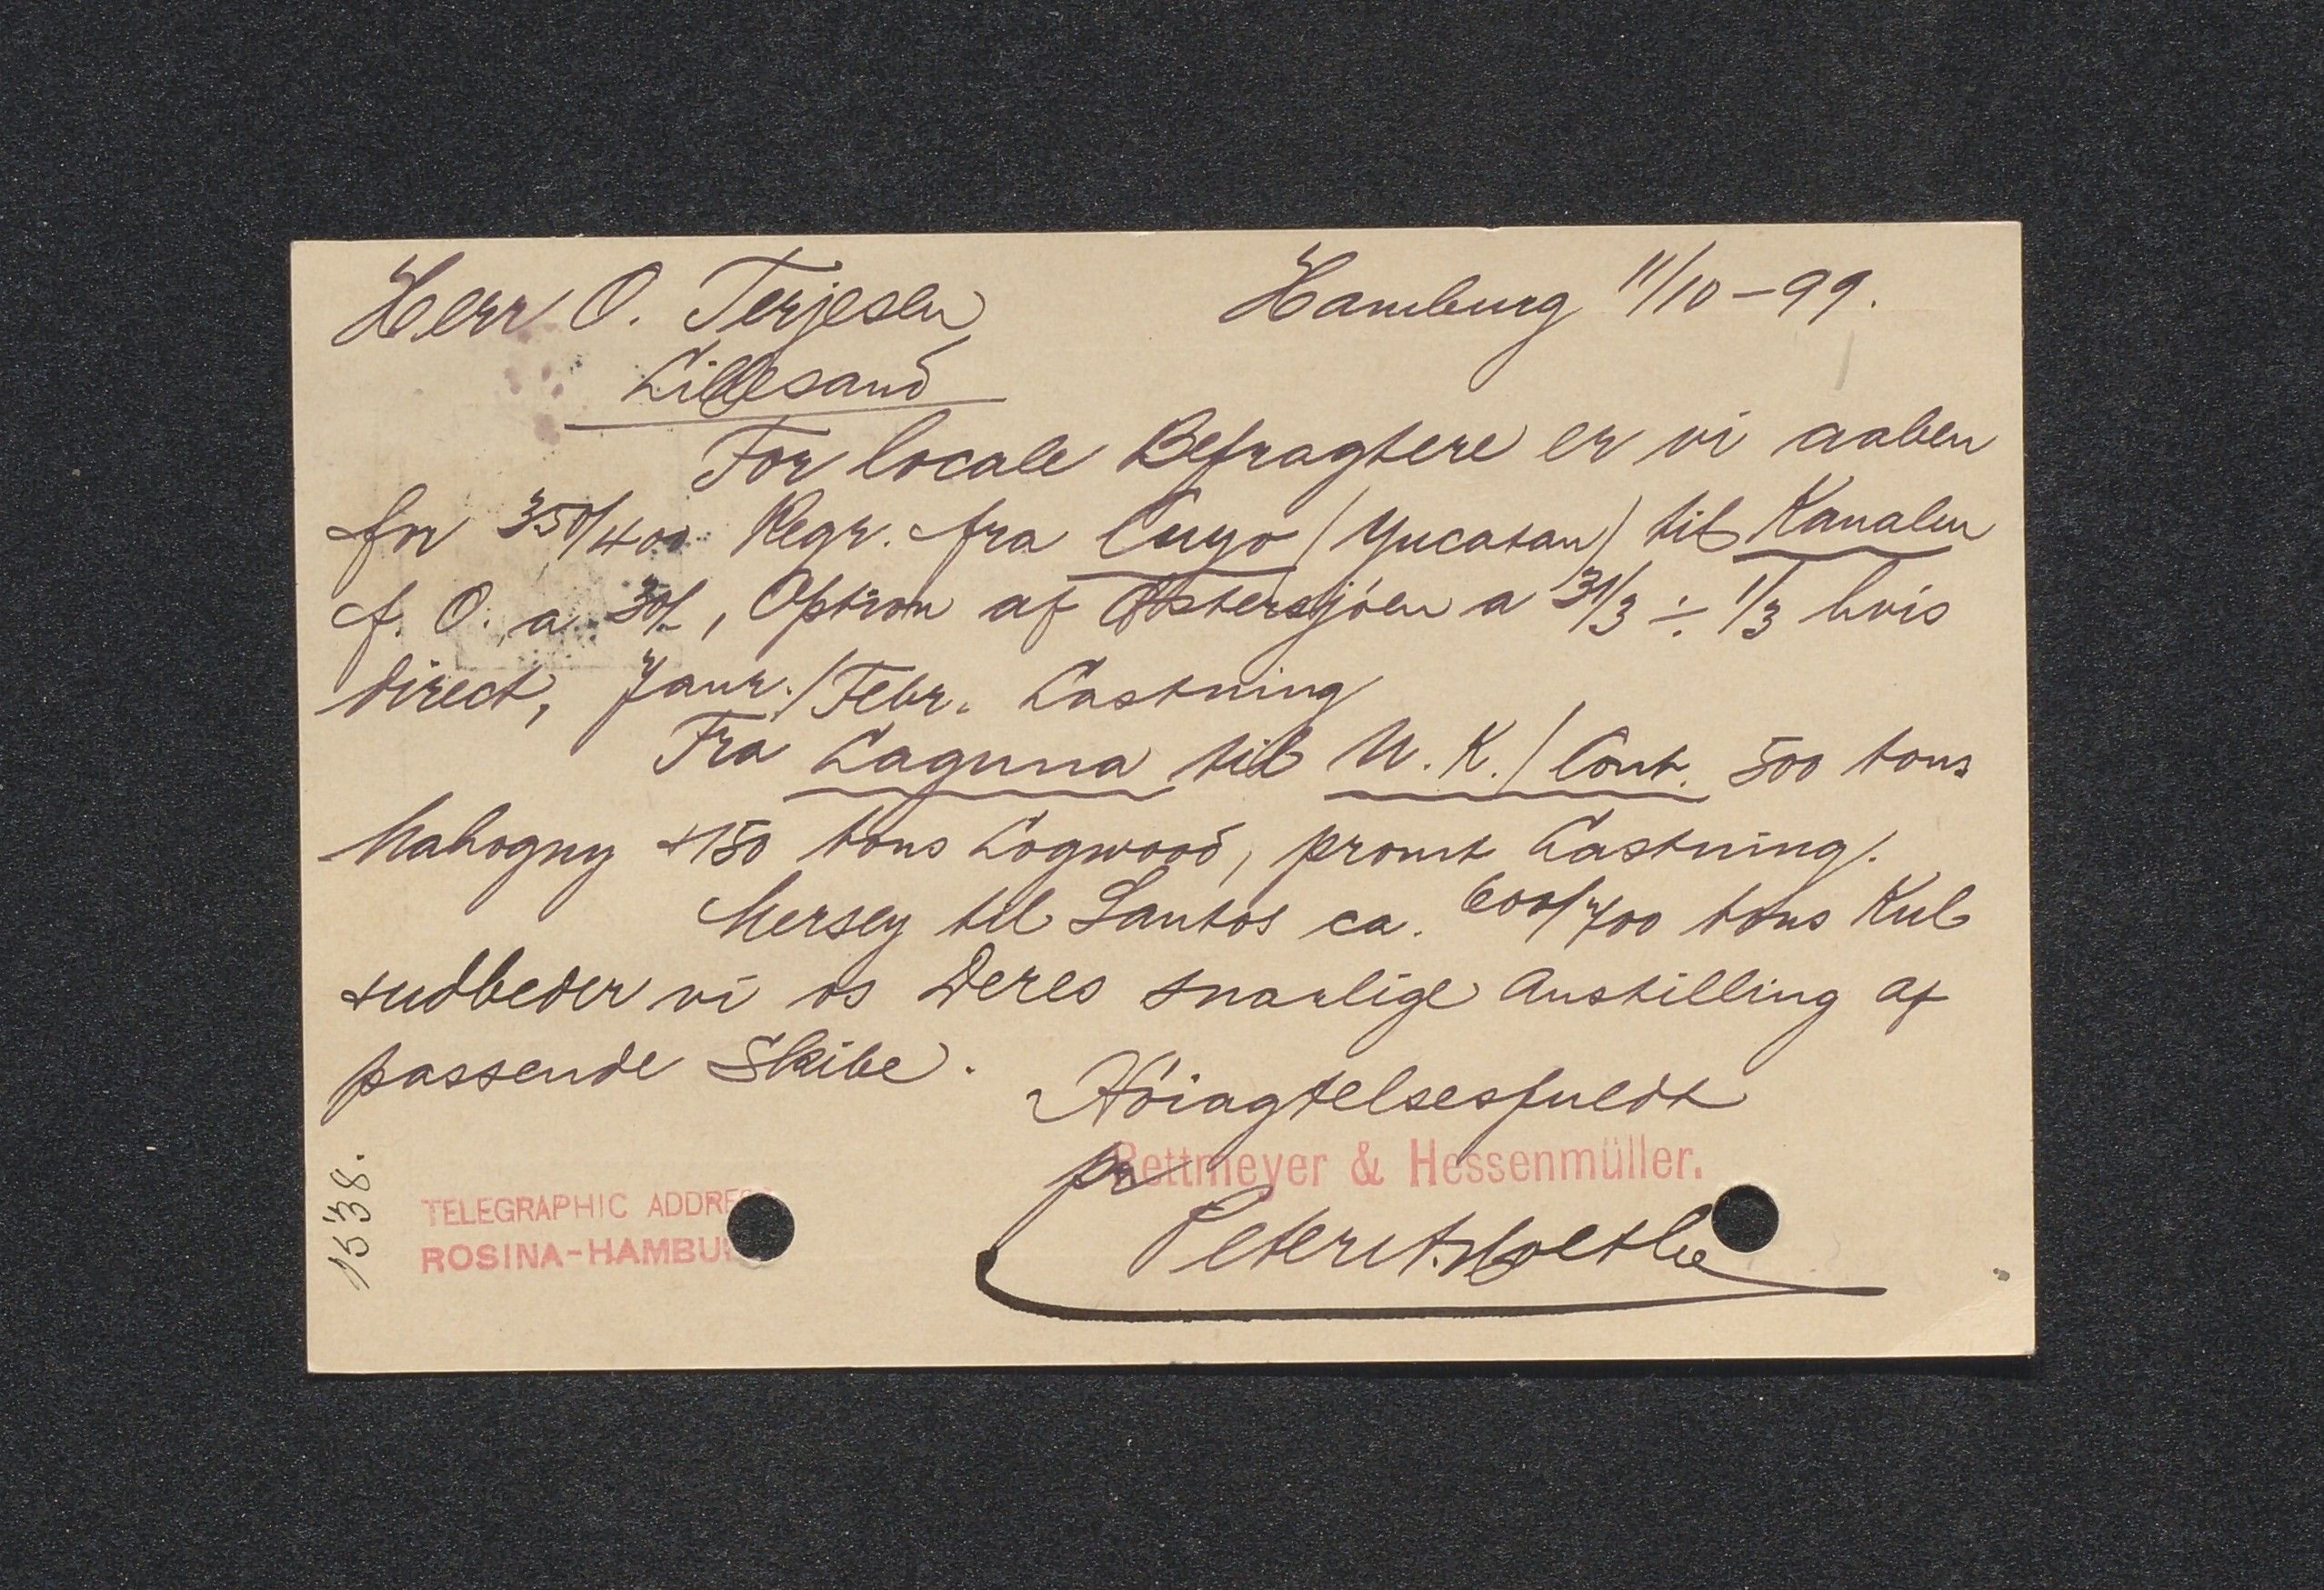 Herr O. Terjesen Hamburg 11/10-99.
Lillesand
For locale Befragtere er vi aaben
for 350/400 Regr. fra Cuyo (Yucatan) til Kanalen
f. O. a 30/-, Option af Østersjöen a 31/3 ÷ 1/3 hvis
direct, Janr./Febr. Lastning
Fra Laguna til U.K./Cont. 500 tons
Mahogny +150 tons Logwood, promt Lastning.
Mersey til Santos ca. 600/700 tons Kul
+udbeder vi os Deres snarlige Anstilling af
passende Skibe.
Höiagtelsesfuldt
pr Rettmeyer & Hessenmüller.
1538.
TELEGRAPHIC ADDRESS
ROSINA-HAMBU